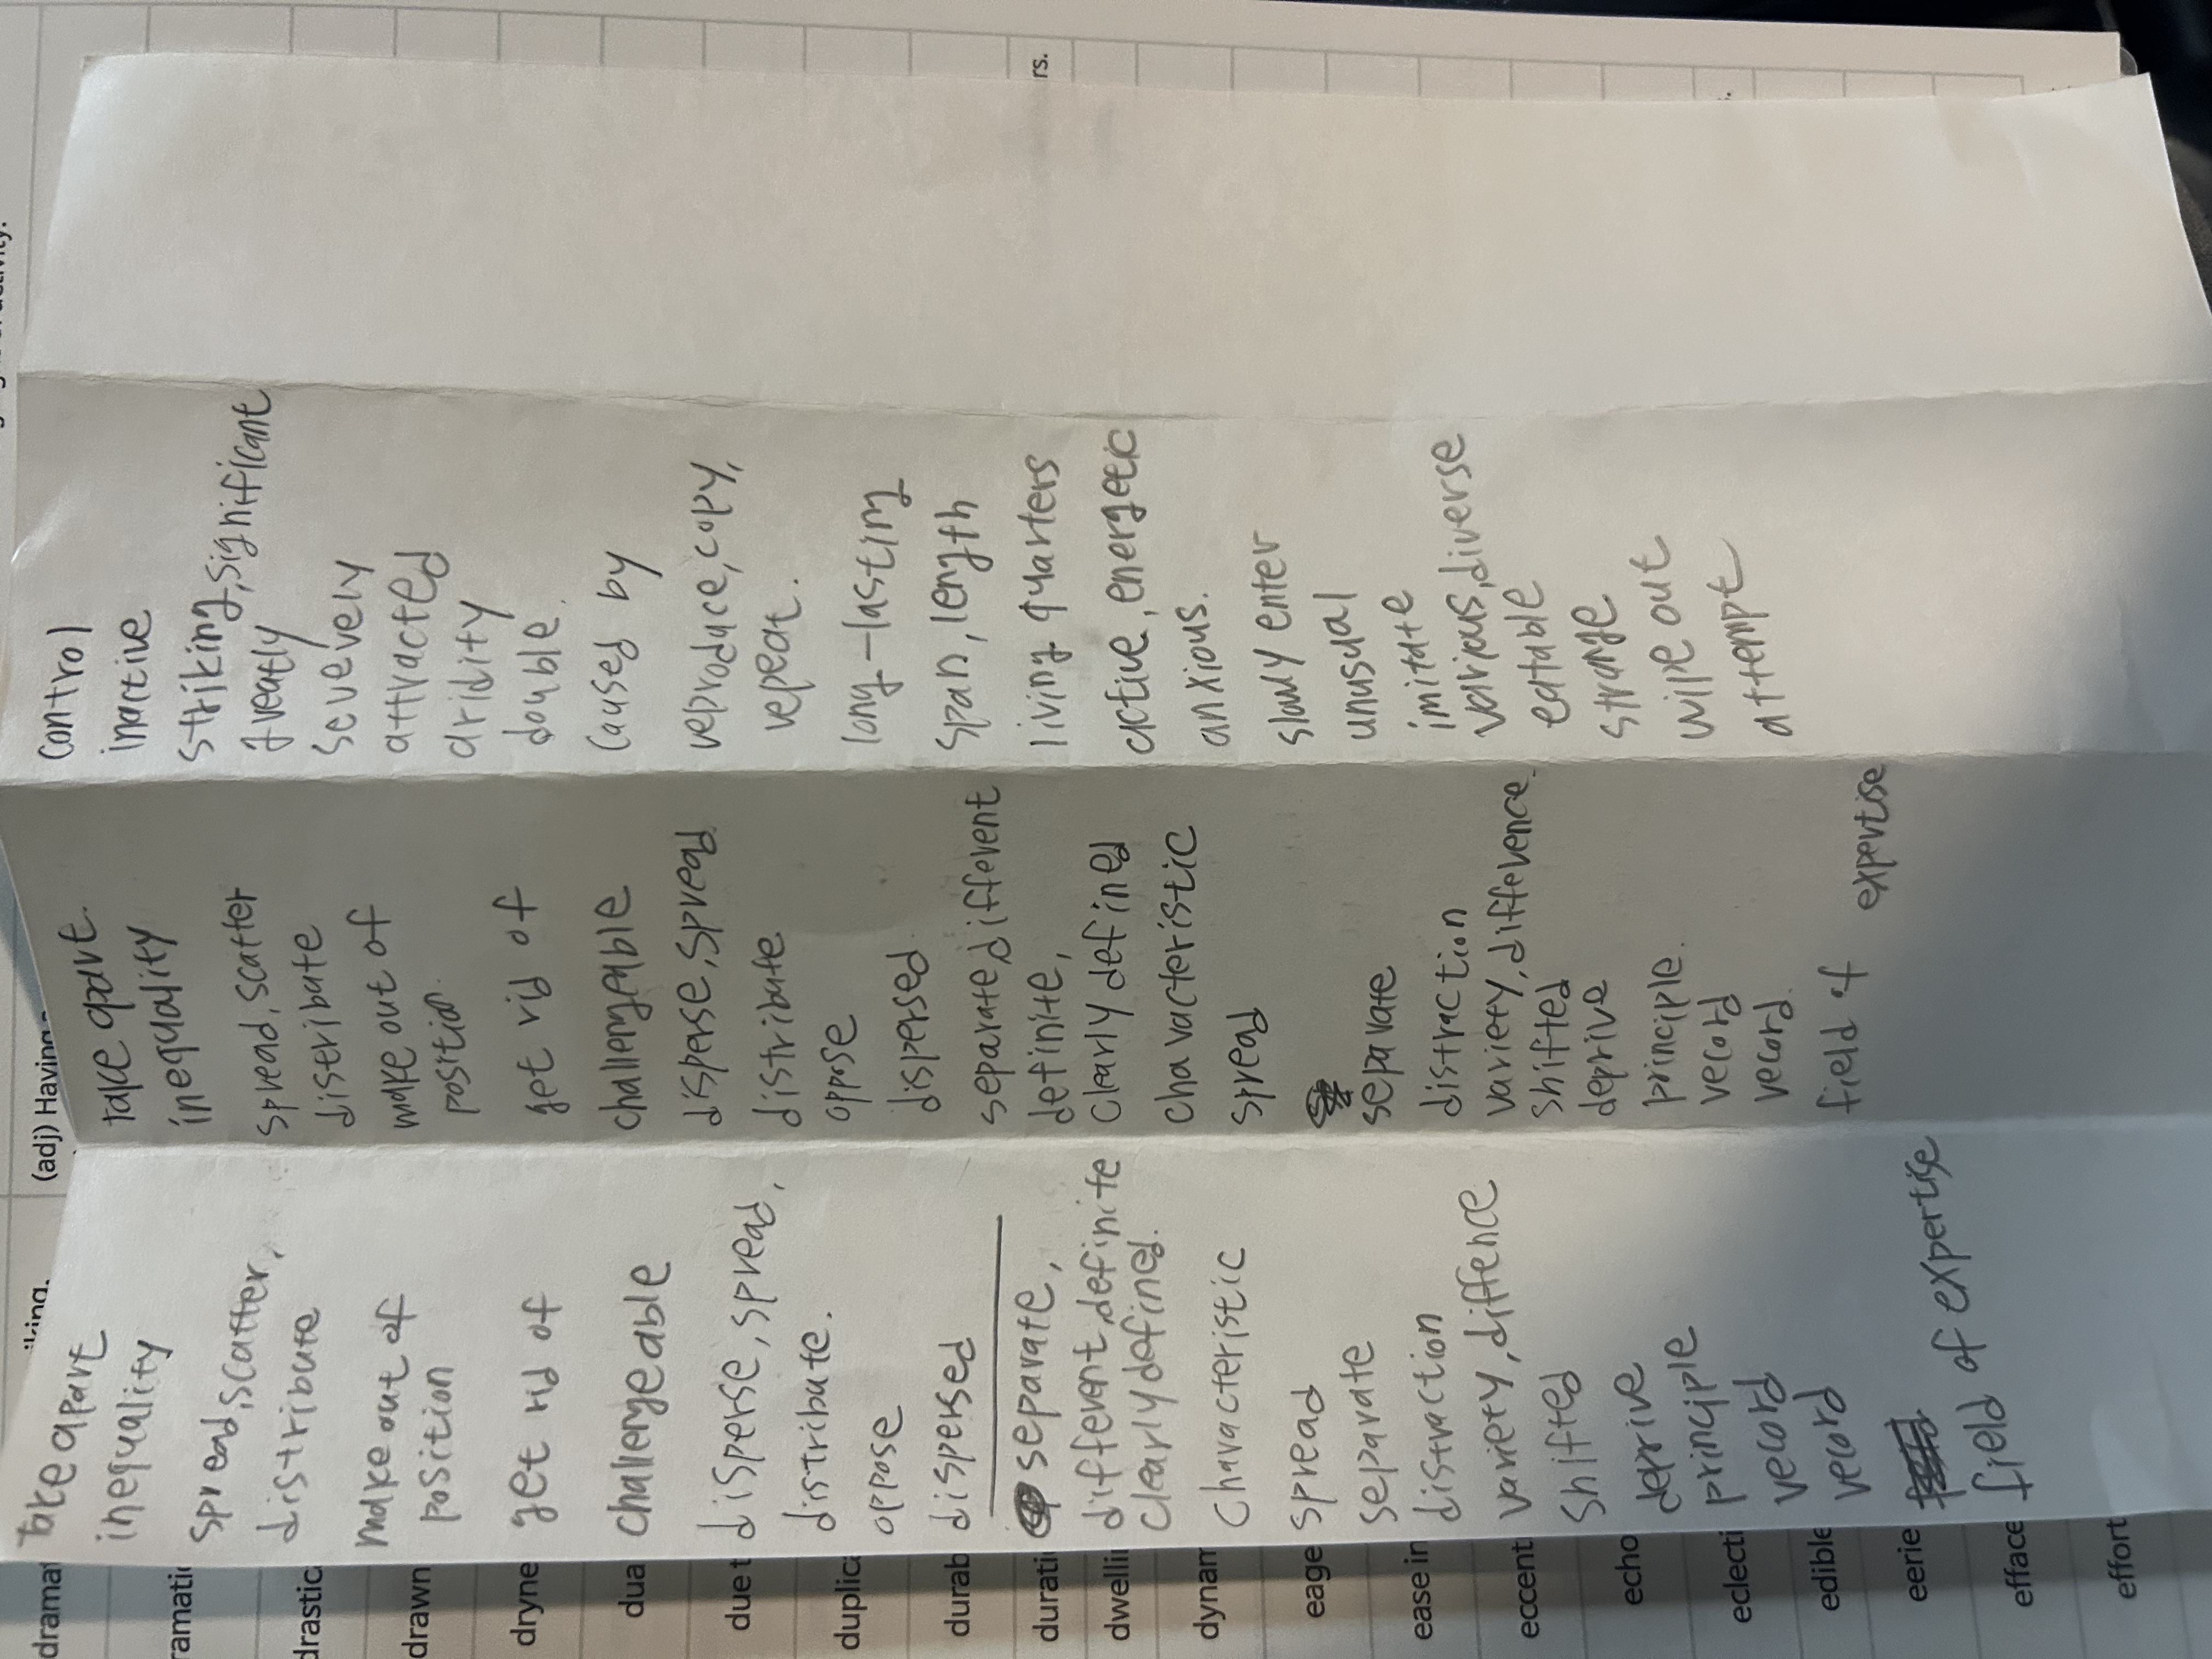 (adj) Having
rs.
dramat
ramatic
drastic
drawn
dryne
dua
due t
duplica
durab
durati
dwelli
dynam
eage
ease in
eccent
echo
eclecti
edible
eerie
efface
effort
take apart
inequality
spread, scatter,
distribute
make out of
position
get rid of
challengeable
disperse, spread,
distribute.
oppose
dispersed
separate,
different, definite
clearly defined.
characteristic
spread
separate
distraction
variety, diffence
shifted
deprive
principle
record
record
field of expertise
take apart.
inequality
spread, scatter
distribute
make out of
position.
get rid of
challengeable
disperse, spread
distribute
oppose
dispersed
separate, different
definite,
clearly defined
characteristic
spread
separate
distraction
variety, difference.
shifted
deprive
principle.
record
record.
field of expertise
control
inactive
striking, significant
greatly
severely
attracted
aridity
double.
caused by
reproduce, copy,
repeat.
long-lasting
span, length
living quarters
active, energetic
anxious.
slowly enter
unusual
imitate
various, diverse
eatable
strange
wipe out
attempt